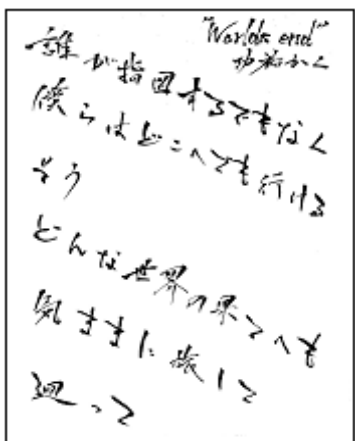 "Worlds end"
かく
誰が指図するでもなく
僕らはどこへでも行ける
そう
どんな世界の果てへも
気ままに旅して
廻って